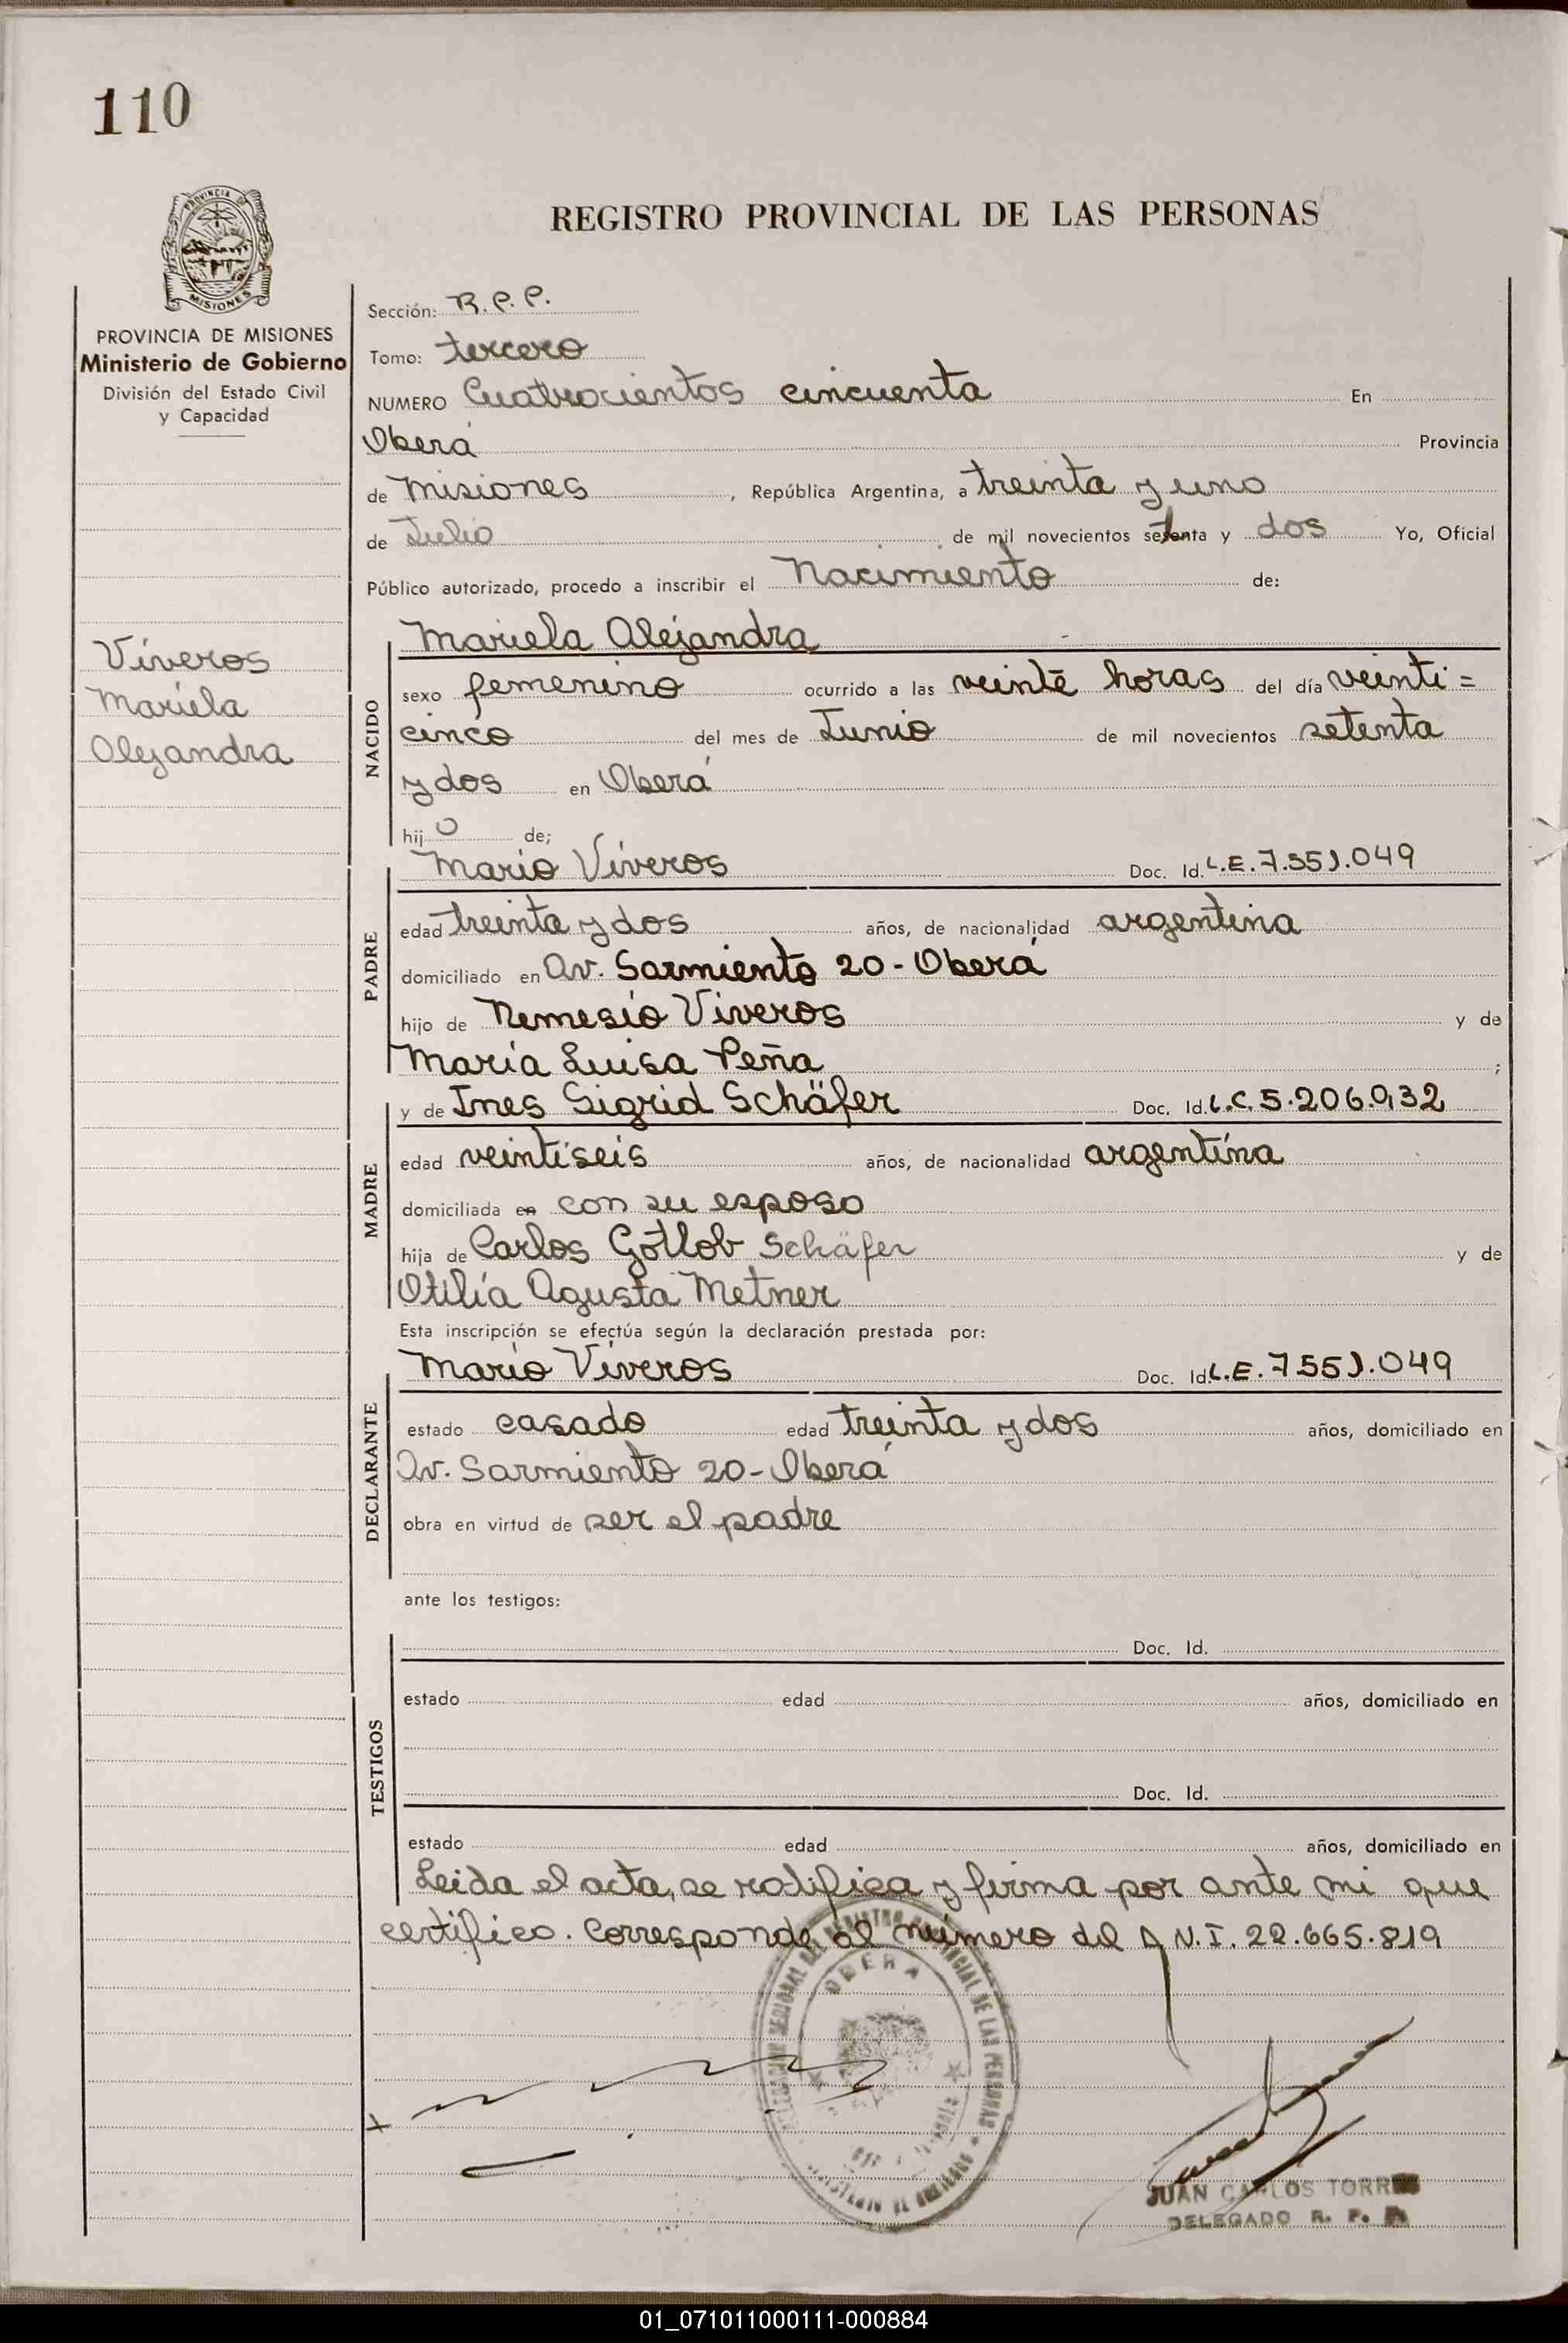 110
PROVINCIA DE
MISIONES
REGISTRO PROVINCIAL DE LAS PERSONAS
PROVINCIA DE MISIONES
Ministerio de Gobierno
División del Estado Civil
y Capacidad
Viveros
Mariela
Alejandra
Sección: R.P.P.
Tomo: tercero
NUMERO Cuatrocientos cincuenta En
Oberá Provincia
de Misiones, República Argentina, a treinta y uno
de Julio de mil novecientos setenta y dos Yo, Oficial
Público autorizado, procedo a inscribir el Nacimiento de:
NACIDO
Mariela Alejandra
sexo femenino ocurrido a las veinte horas del día veinti=
cinco del mes de Junio de mil novecientos setenta
y dos en Oberá
hijo de;
PADRE
Mario Viveros Doc. Id. L.E. 7.551.049
edad treinta y dos años, de nacionalidad argentina
domiciliado en Av. Sarmiento 20-Oberá
hijo de Nemesio Viveros y de
María Luisa Peña ;
MADRE
y de Ines Sigrid Schäfer Doc. Id. L.C. 5.206.032
edad veintiseis años, de nacionalidad argentina
domiciliada en con su esposo
hija de Carlos Gotlob Schäfer y de
Otilia Agusta Metner
Esta inscripción se efectúa según la declaración prestada por:
DECLARANTE
Mario Viveros Doc. Id. L.E. 7551.049
estado casado edad treinta y dos años, domiciliado en
Av. Sarmiento 20-Oberá
obra en virtud de ser el padre
ante los testigos:
TESTIGOS
Doc. Id.
estado edad años, domiciliado en
Doc. Id.
estado edad años, domiciliado en
Leida el acta, se ratifica y firma por ante mi que
certifico. Corresponde al número del D.N.I. 22.665.819
OBERA
JUAN CARLOS TORRES
DELEGADO R. P. P.
01_071011000111-000884